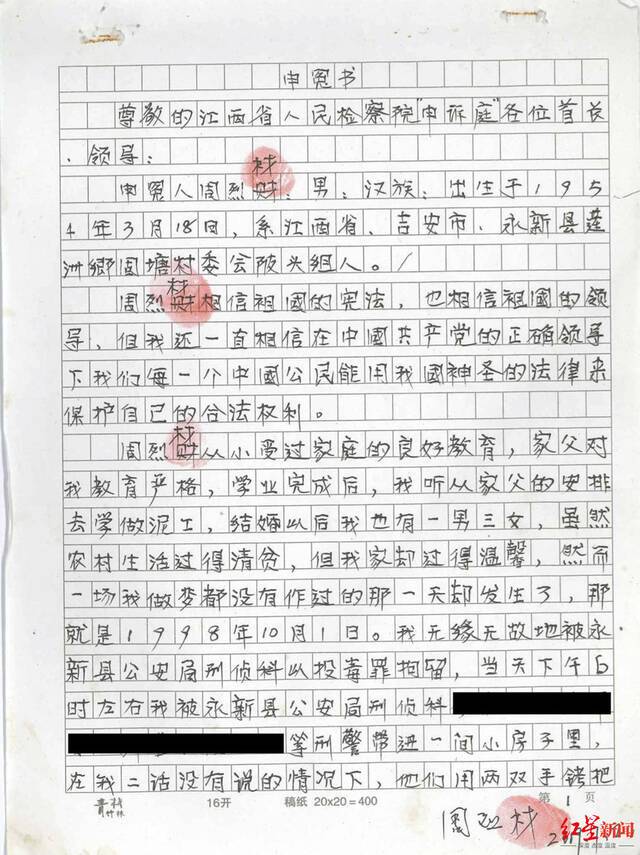 申冤书
尊敬的江西省人民检察院"申诉庭"各位首长
、领导：
申冤人周烈材：男：汉族：出生于195
4年3月18日，系江西省、吉安市、永新县莲
洲鄉周塘村委会陂头组人。
周烈材相信祖國的宪法，也相信祖國的领
导，但我还一直相信在中國共产党的正确领导
下我们每一个中國公民能用我國神圣的法律来
保护自己的合法权利。
周烈材从小受过家庭的良好教育，家父对
我教育严格，学业完成后，我听从家父的安排
去学做泥工，结婚以后我也有一男三女，虽然
农村生活过得清贫，但我家却过得温馨，然而
一场我做梦都没有作过的那一天却发生了，那
就是1998年10月1日。我无缘无故地被永
新县公安局刑侦科以投毒罪拘留，当天下午6
时左右我被永新县公安局刑侦科
等刑警带进一间小房子里，
在我二话没有说的情况下，他们用两双手铐把
青 16开 稿纸 20×20=400 第1页
周烈材
红星新闻
深度 态度 温度